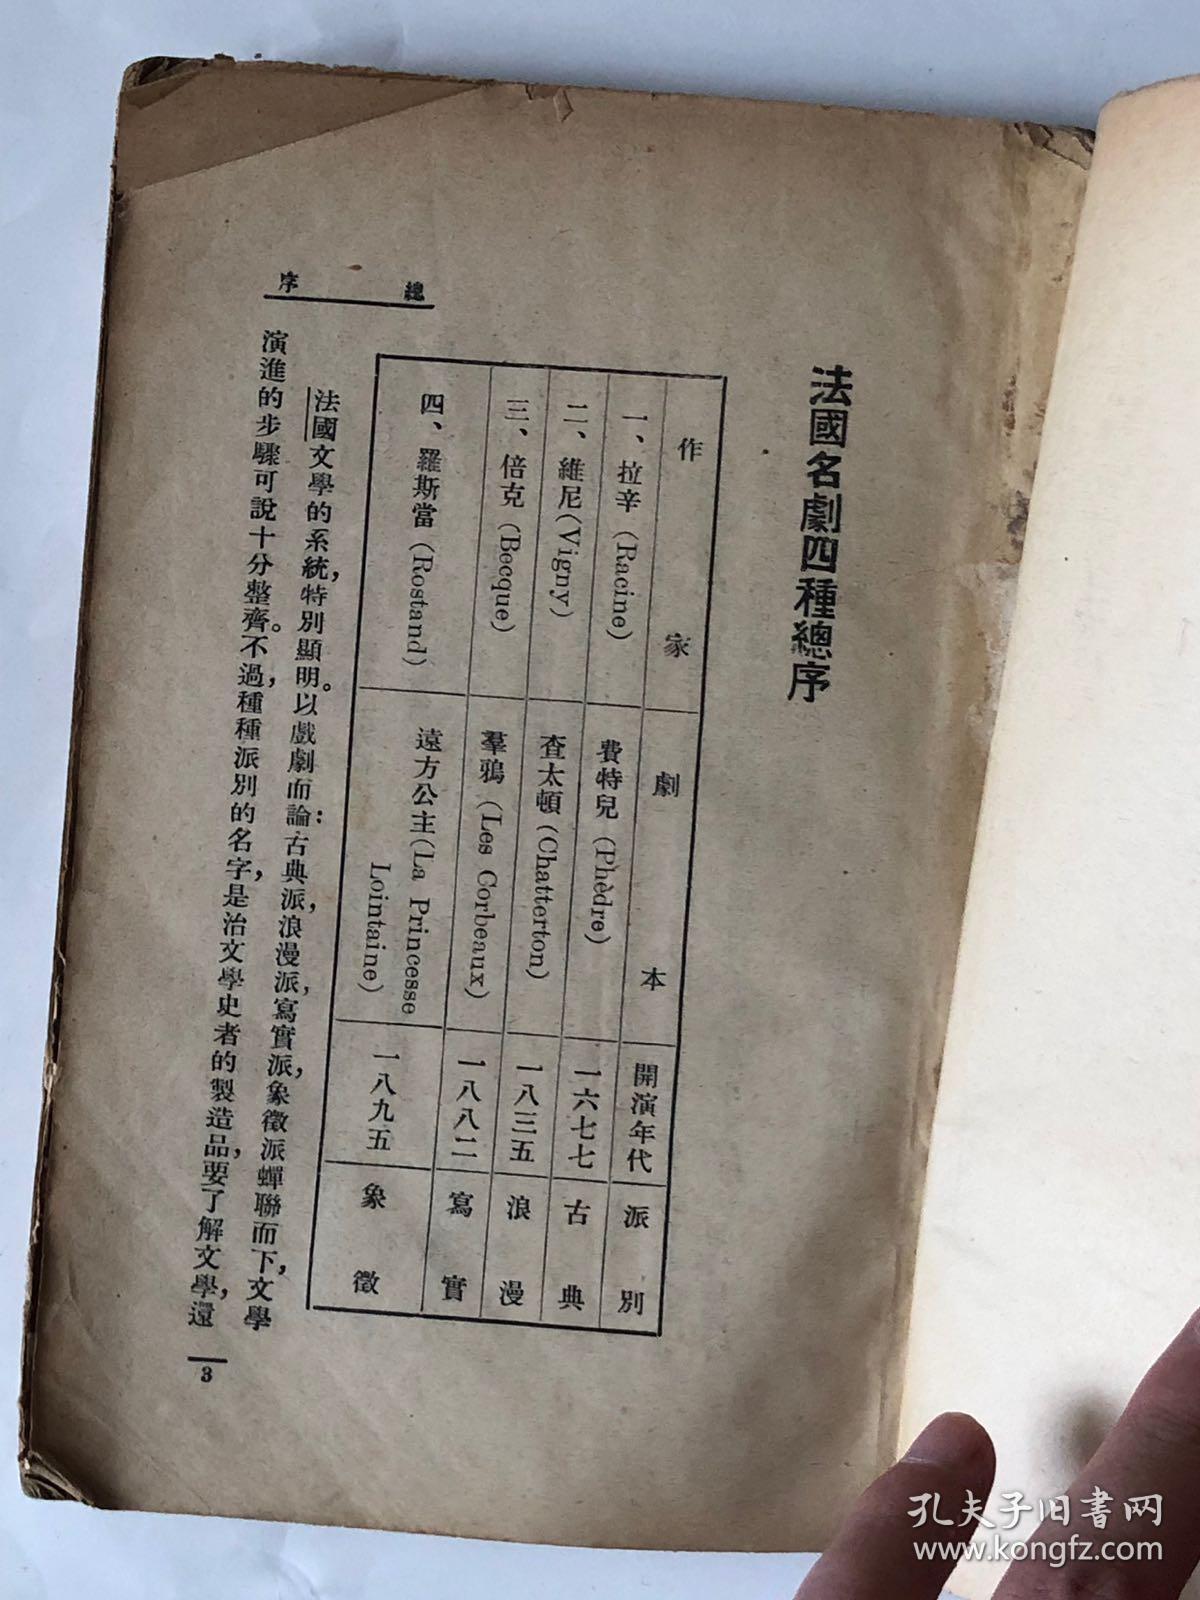 法國名劇四種總序
作家 劇本 開演年代 派別
一、拉辛(Racine) 費特兒(Phèdre) 一六七七 古典
二、維尼(Vigny) 查太頓(Chatterton) 一八三五 浪漫
三、倍克(Becque) 羣鴉(Les Corbeaux) 一八八二 寫實
四、羅斯當(Rostand) 遠方公主(La Princesse
Lointaine) 一八九五 象徵
法國文學的系統,特別顯明。以戲劇而論:古典派,浪漫派,寫實派,象徵派蟬聯而下,文學
演進的步驟可說十分整齊。不過,種種派別的名字,是治文學史者的製造品,要了解文學,還
總序
3
孔夫子旧书网
www.kongfz.com